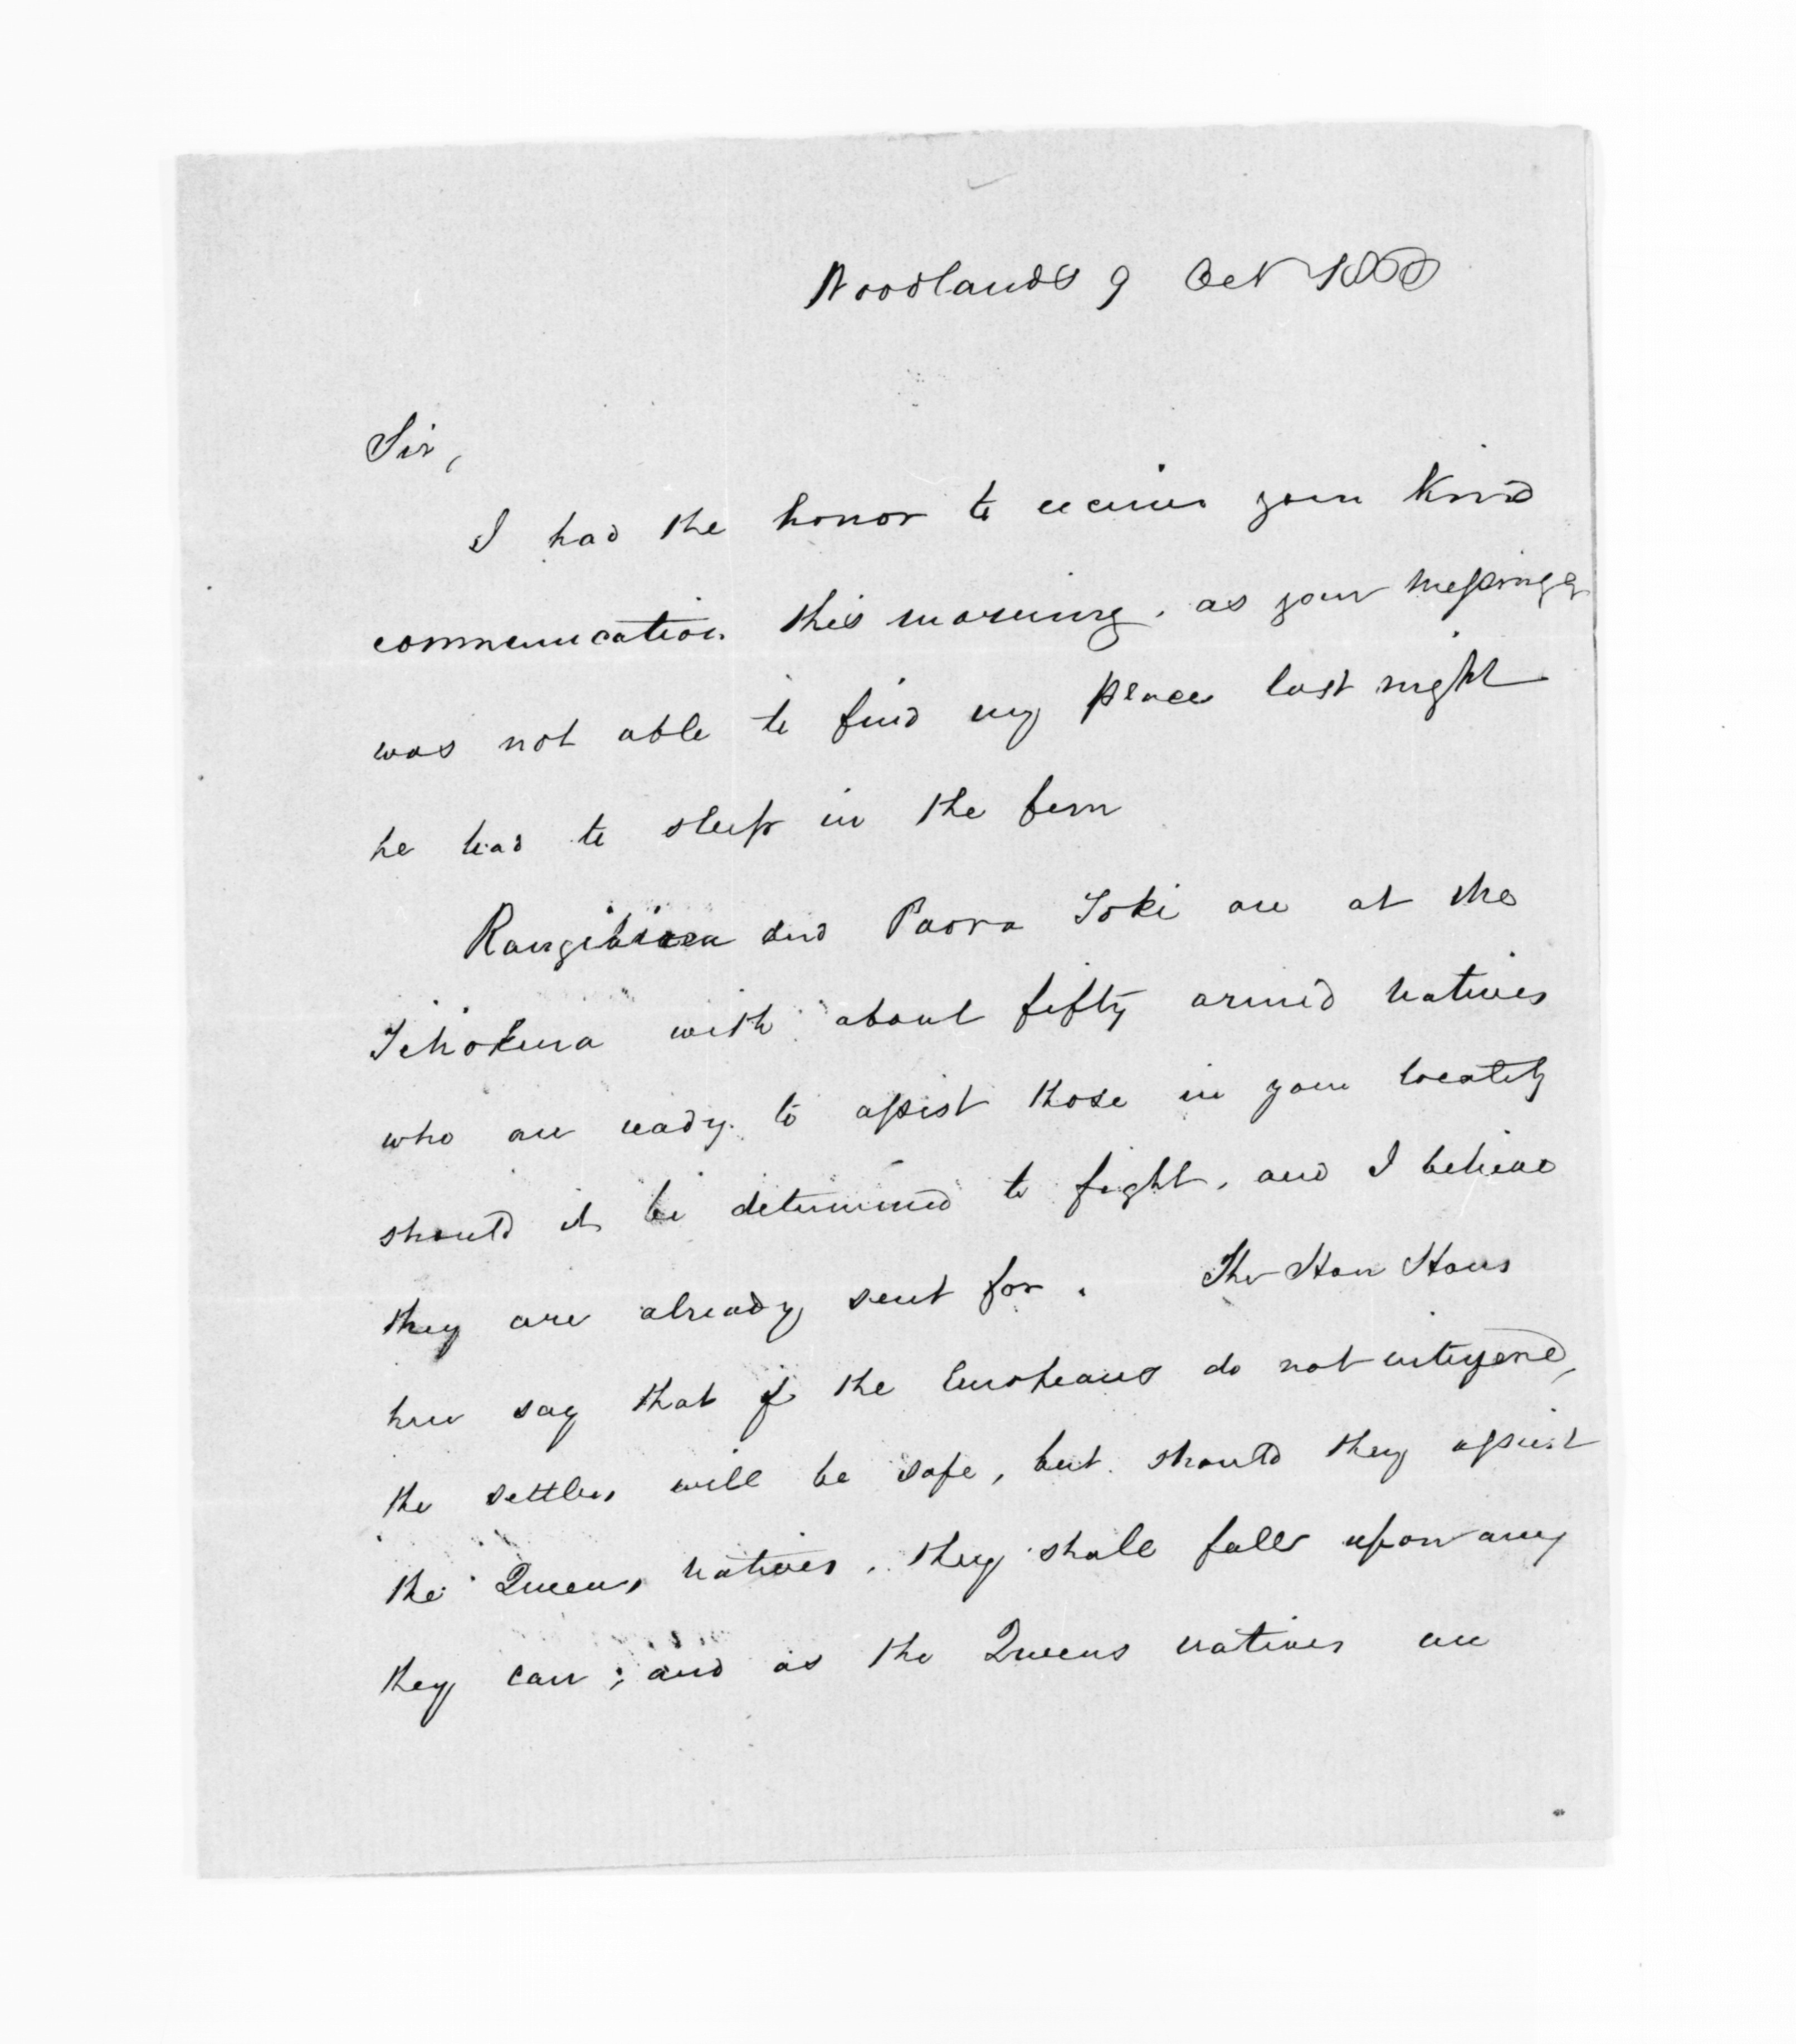 Woodlands 9 Oct
Sir,
I had the honor to receive your kind
communication this morning, as your messenger
was not able to find my place last night
he had to sleep in the fern
and Paora Toki are at the
with about fifty armed natives
who are ready to assist those in your locality
should it be determined to fight, and I believe
they are already sent for. The Hau Haus
here say that if the Europeans do not interfere,
the settlers will be safe, but should they assist
the Queens natives, they shall fall upon any
they can; and as the Queens natives are